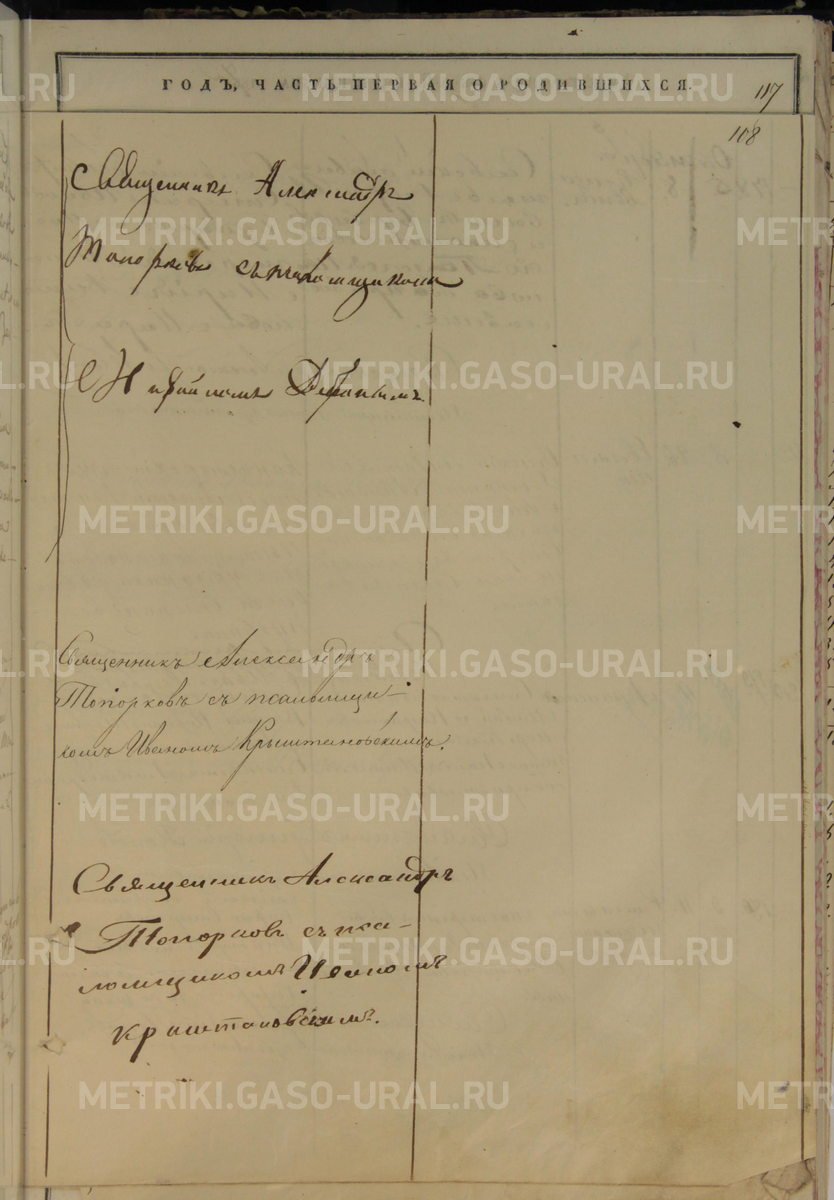 ГОДЪ, ЧАСТЬ ПЕРВАЯ О РОДИВШИХСЯ.
117
118
Священникъ Александръ
Топорковъ съ псаломщикомъ
Священникъ Александръ
Топорковъ съ псаломщи-
комъ Иваномъ Крыштановскимъ.
Священникъ Александръ
Топорковъ съ пса-
ломщикомъ Иваномъ
Криштановскимъ.
METRIKI.GASO-URAL.RU